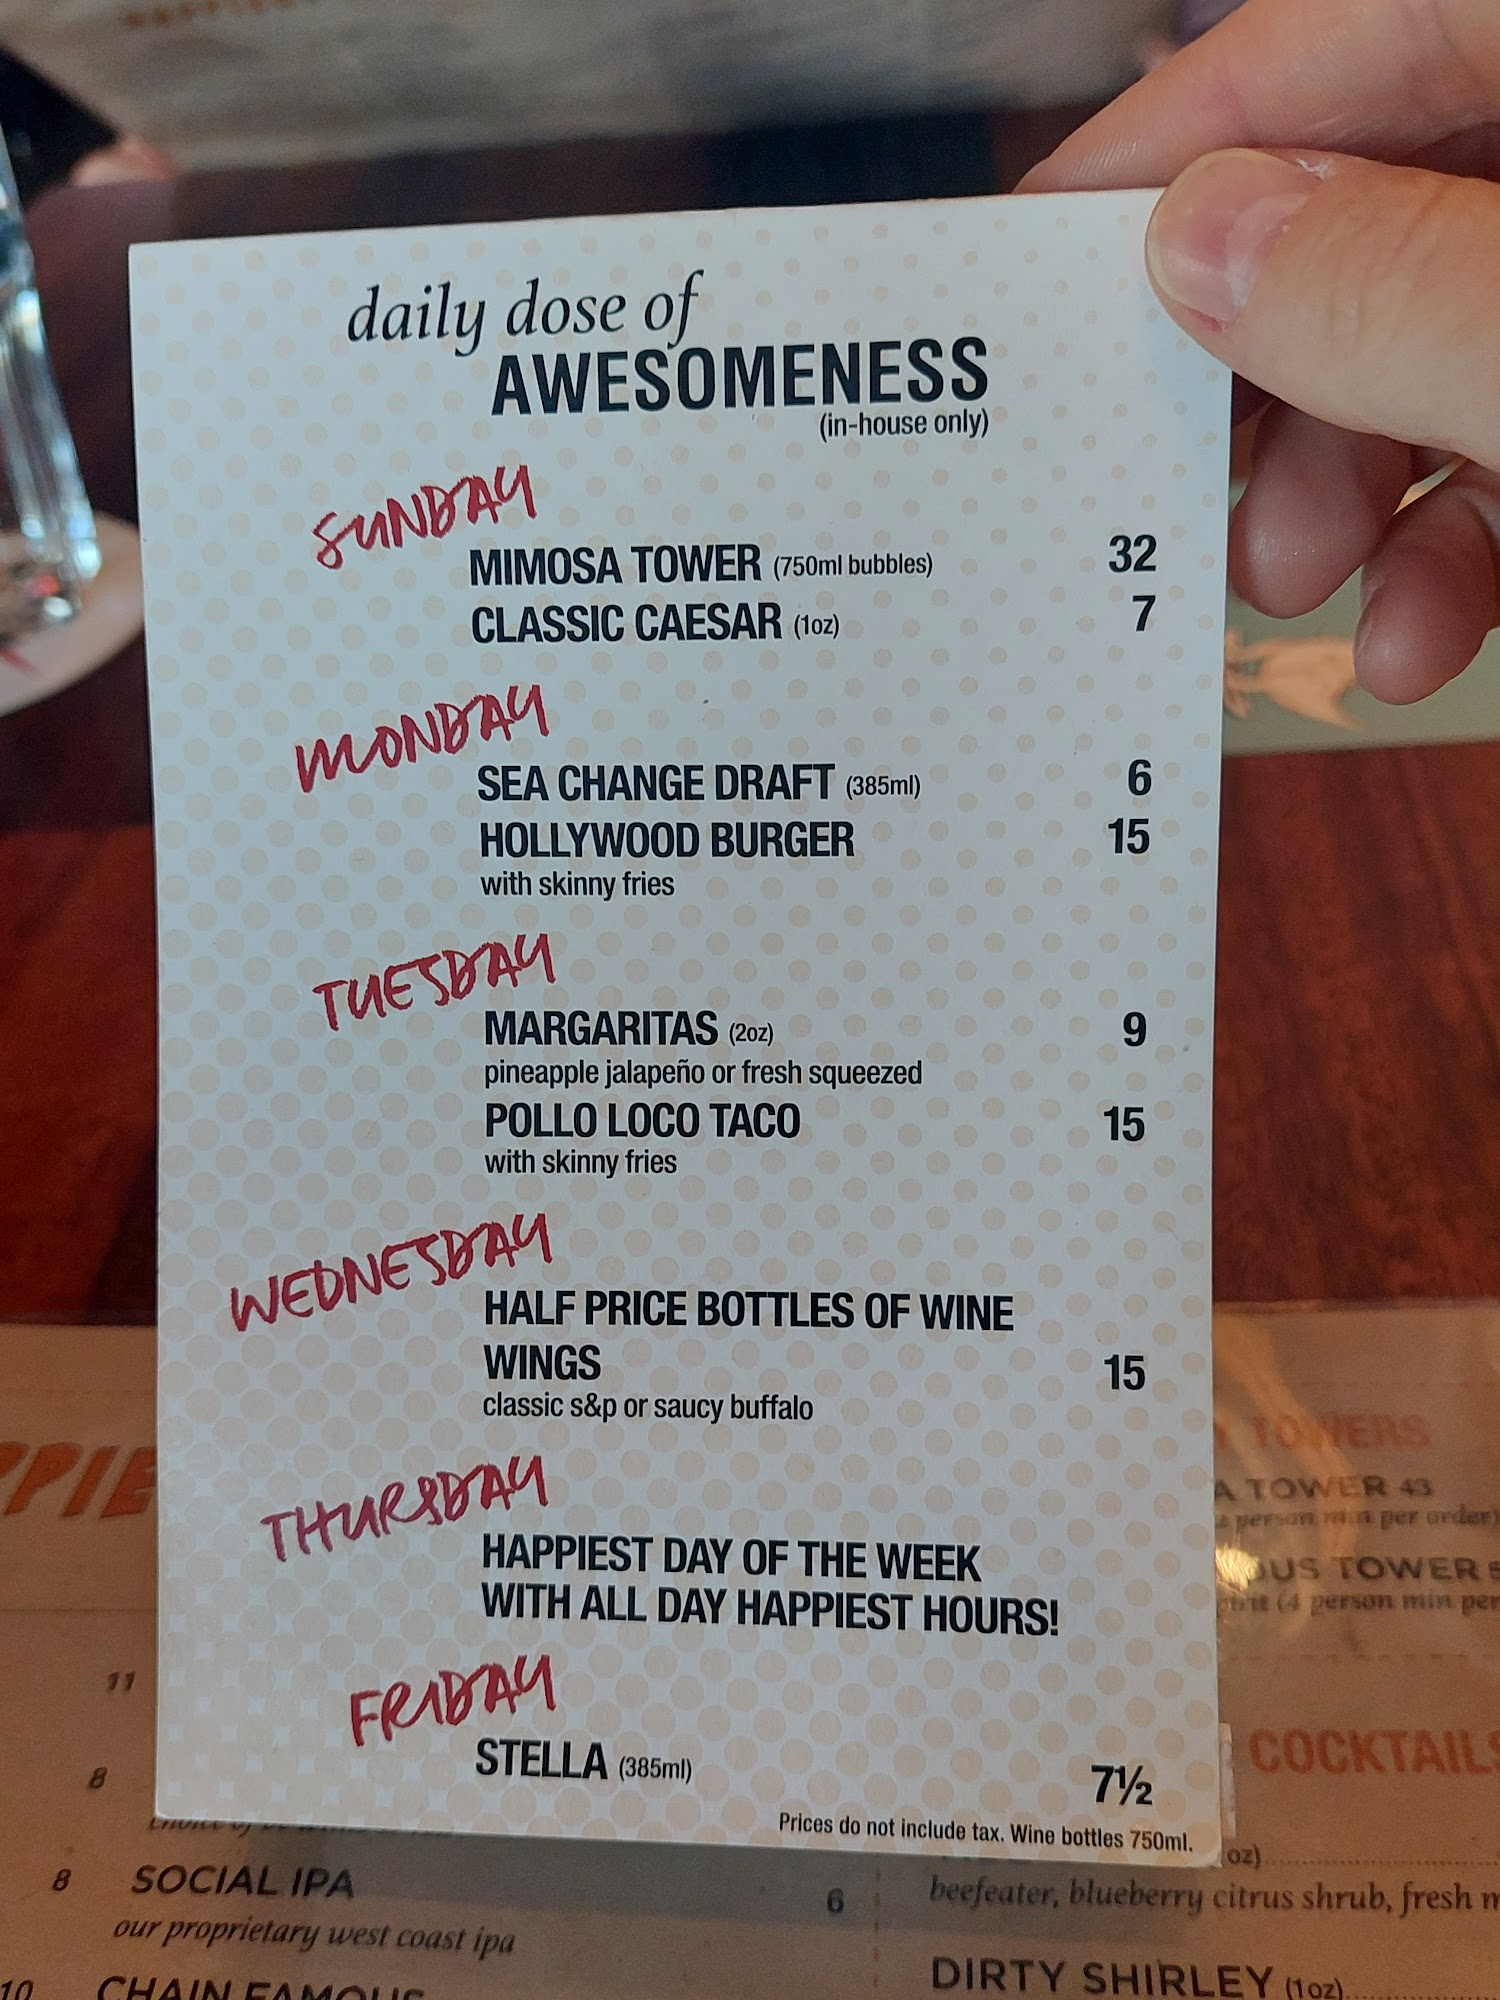 daily dose of
AWESOMENESS
(in-house only)
SUNDAY
MIMOSA TOWER (750ml bubbles) 32
CLASSIC CAESAR (1oz) 7
MONDAY
SEA CHANGE DRAFT (385ml) 6
HOLLYWOOD BURGER 15
with skinny fries
TUESDAY
MARGARITAS (2oz) 9
pineapple jalapeño or fresh squeezed
POLLO LOCO TACO 15
with skinny fries
WEDNESDAY
HALF PRICE BOTTLES OF WINE
WINGS 15
classic s&p or saucy buffalo
THURSDAY
HAPPIEST DAY OF THE WEEK
WITH ALL DAY HAPPIEST HOURS!
FRIDAY
STELLA (385ml) 7½
Prices do not include tax. Wine bottles 750ml.
TOWERS
TOWER 43
person min per order)
TOWER
(4 person min per
COCKTAILS
oz)
beefeater, blueberry citrus shrub, fresh
DIRTY SHIRLEY (1oz)
11
8
8 SOCIAL IPA 6
our proprietary west coast ipa
10 CHAIN FAMOUS